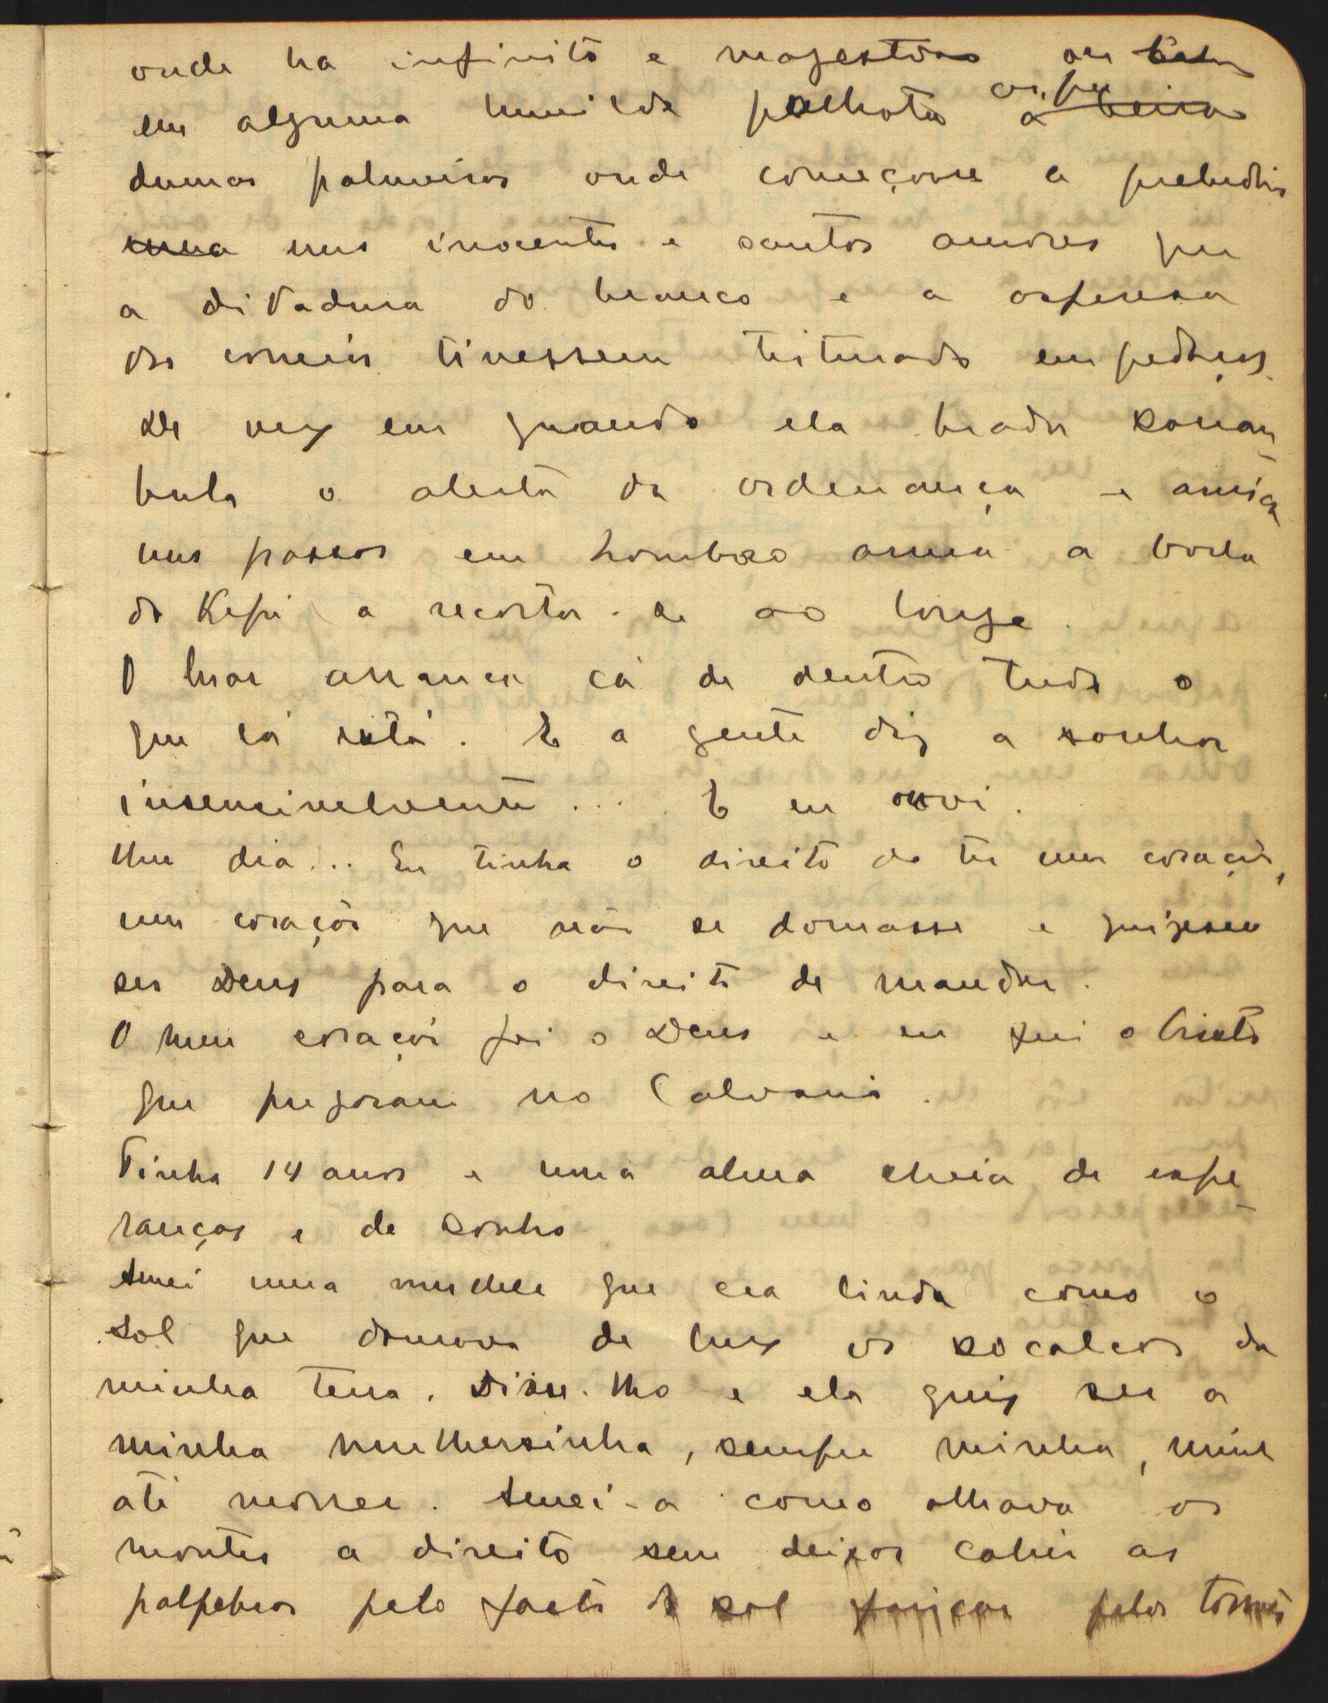 onde ha infinito e magestoso ou
em alguma humilde palhota á beira
dumas palmeiras onde começou a preludiar
uma uns inocentes e santos amores que
a ditadura do branco e a
dos tivessem triturado em pedaços.
De vez em quando ela brada sonam-
bula o alerta da ordenança e
uns passos em hombro arma a borla
do Kepi a recortar-se ao longe.
O luar arranca cá de dentro tudo o
que lá está. E a gente diz a sonhar
insensivelmente... E eu ouvi.
Um dia... Eu tinha o direito de ter um coração,
um coração que não se domasse e quizesse
ser Deus para o direito de mandar.
O meu coração foi o Deus e eu fui o Cristo
que pregaram no Calvario.
Tinha 14 anos e uma alma cheia de espe-
ranças e de sonho
Amei uma mulher que era linda como o
sol que dourava de luz os socalcos da
minha terra. Disse-lho e ela quiz ser a
minha mulhersinha, sempre minha, minha
até morrer. Amei-a como olhava os
montes a direito sem deixar cahir as
palpebras pelo facto do sol pelos